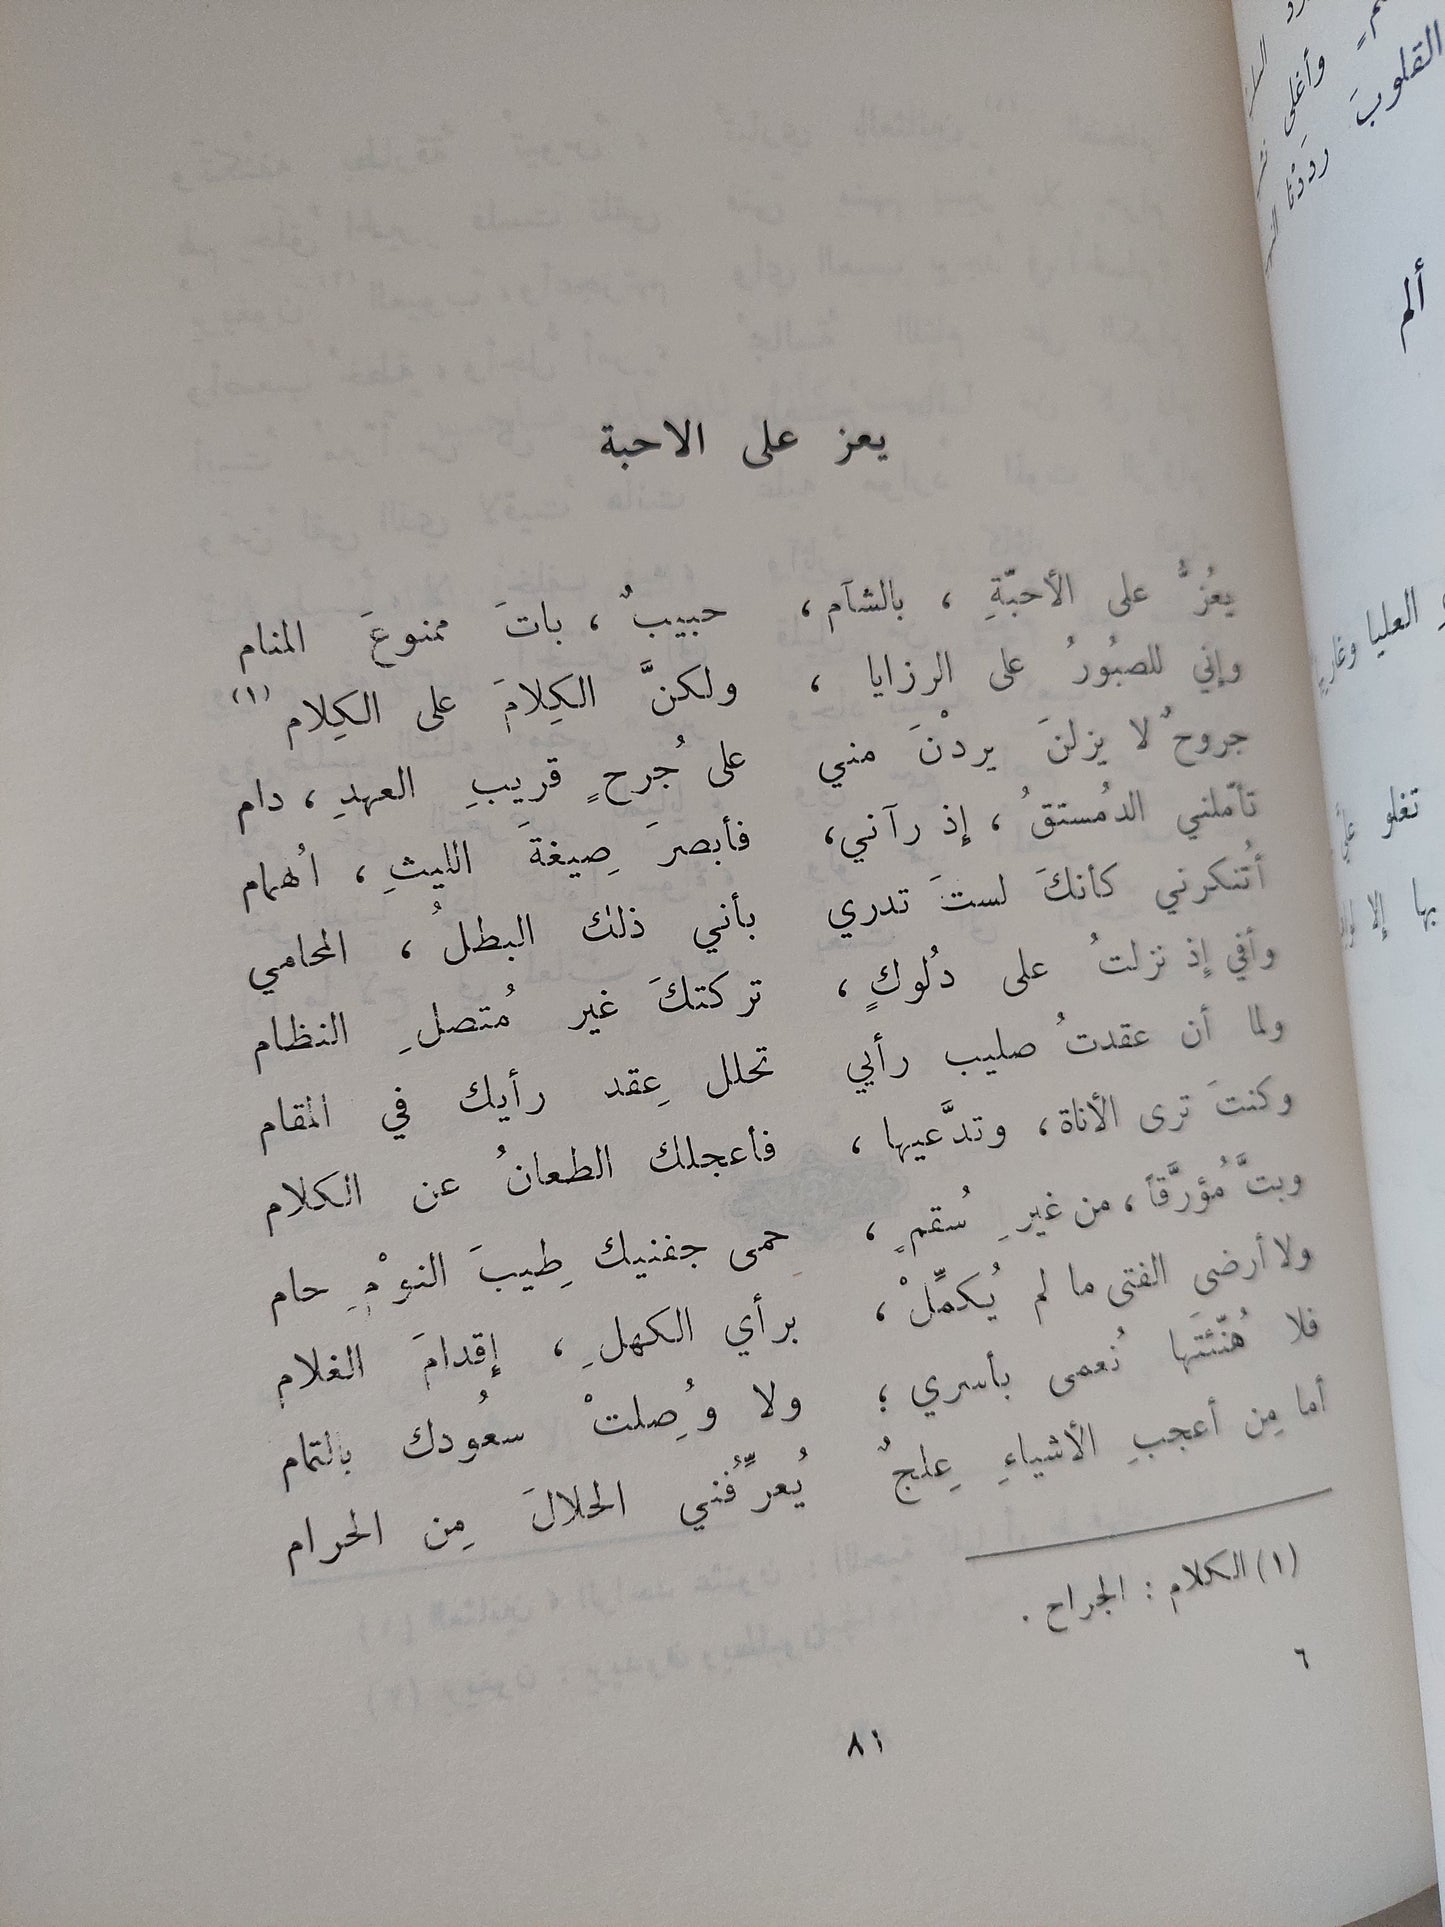 يعز على الاحبة
يعُزُّ على الأحبّةِ ، بالشآم ، حبيبٌ ، باتَ ممنوعَ المنام
وإني للصبُورُ على الرزايا ، ولكنَّ الكِلامَ على الكِلام (١)
جروحٌ لا يزلنَ يردْنَ مني على جُرحٍ قريبِ العهدِ ، دام
تأمّلني الدمُستقُ ، إذ رآني ، فأبصرَ صِيغةَ الليثِ ، الهمام
أتُنكرني كأنكَ لستَ تدري بأني ذلك البطلُ ، المحامي
وأني إذ نزلتُ على دُلوكٍ ، تركتكَ غير مُتصلِ النظام
ولما أن عقدتُ صليب رأيي تحلل عِقد رأيك في المقام
وكنتَ ترى الأناة ، وتدَّعيها ، فأعجلك الطعانُ عن الكلام
وبتَّ مُؤرَّقاً ، من غيرِ سُقمٍ ، حِمى جفنيك طِيبَ النوْمِ حام
ولا أرضى الفتى ما لم يُكمِّلْ ، برأي الكهلِ ، إقدامَ الغلام
فلا هُنّئتَها نُعمى بأسري ؛ ولا وُصِلتْ سعُودك بالتمام
أما مِن أعجبِ الأشياءِ عِلجٌ يُعرِّفُني الحلالَ مِن الحرام
(١) الكلام : الجراح .
٦
٨١
ألم
القلوبَ رددْنا
وأغلى
العليا
تغلو عليَّ
بها إلا